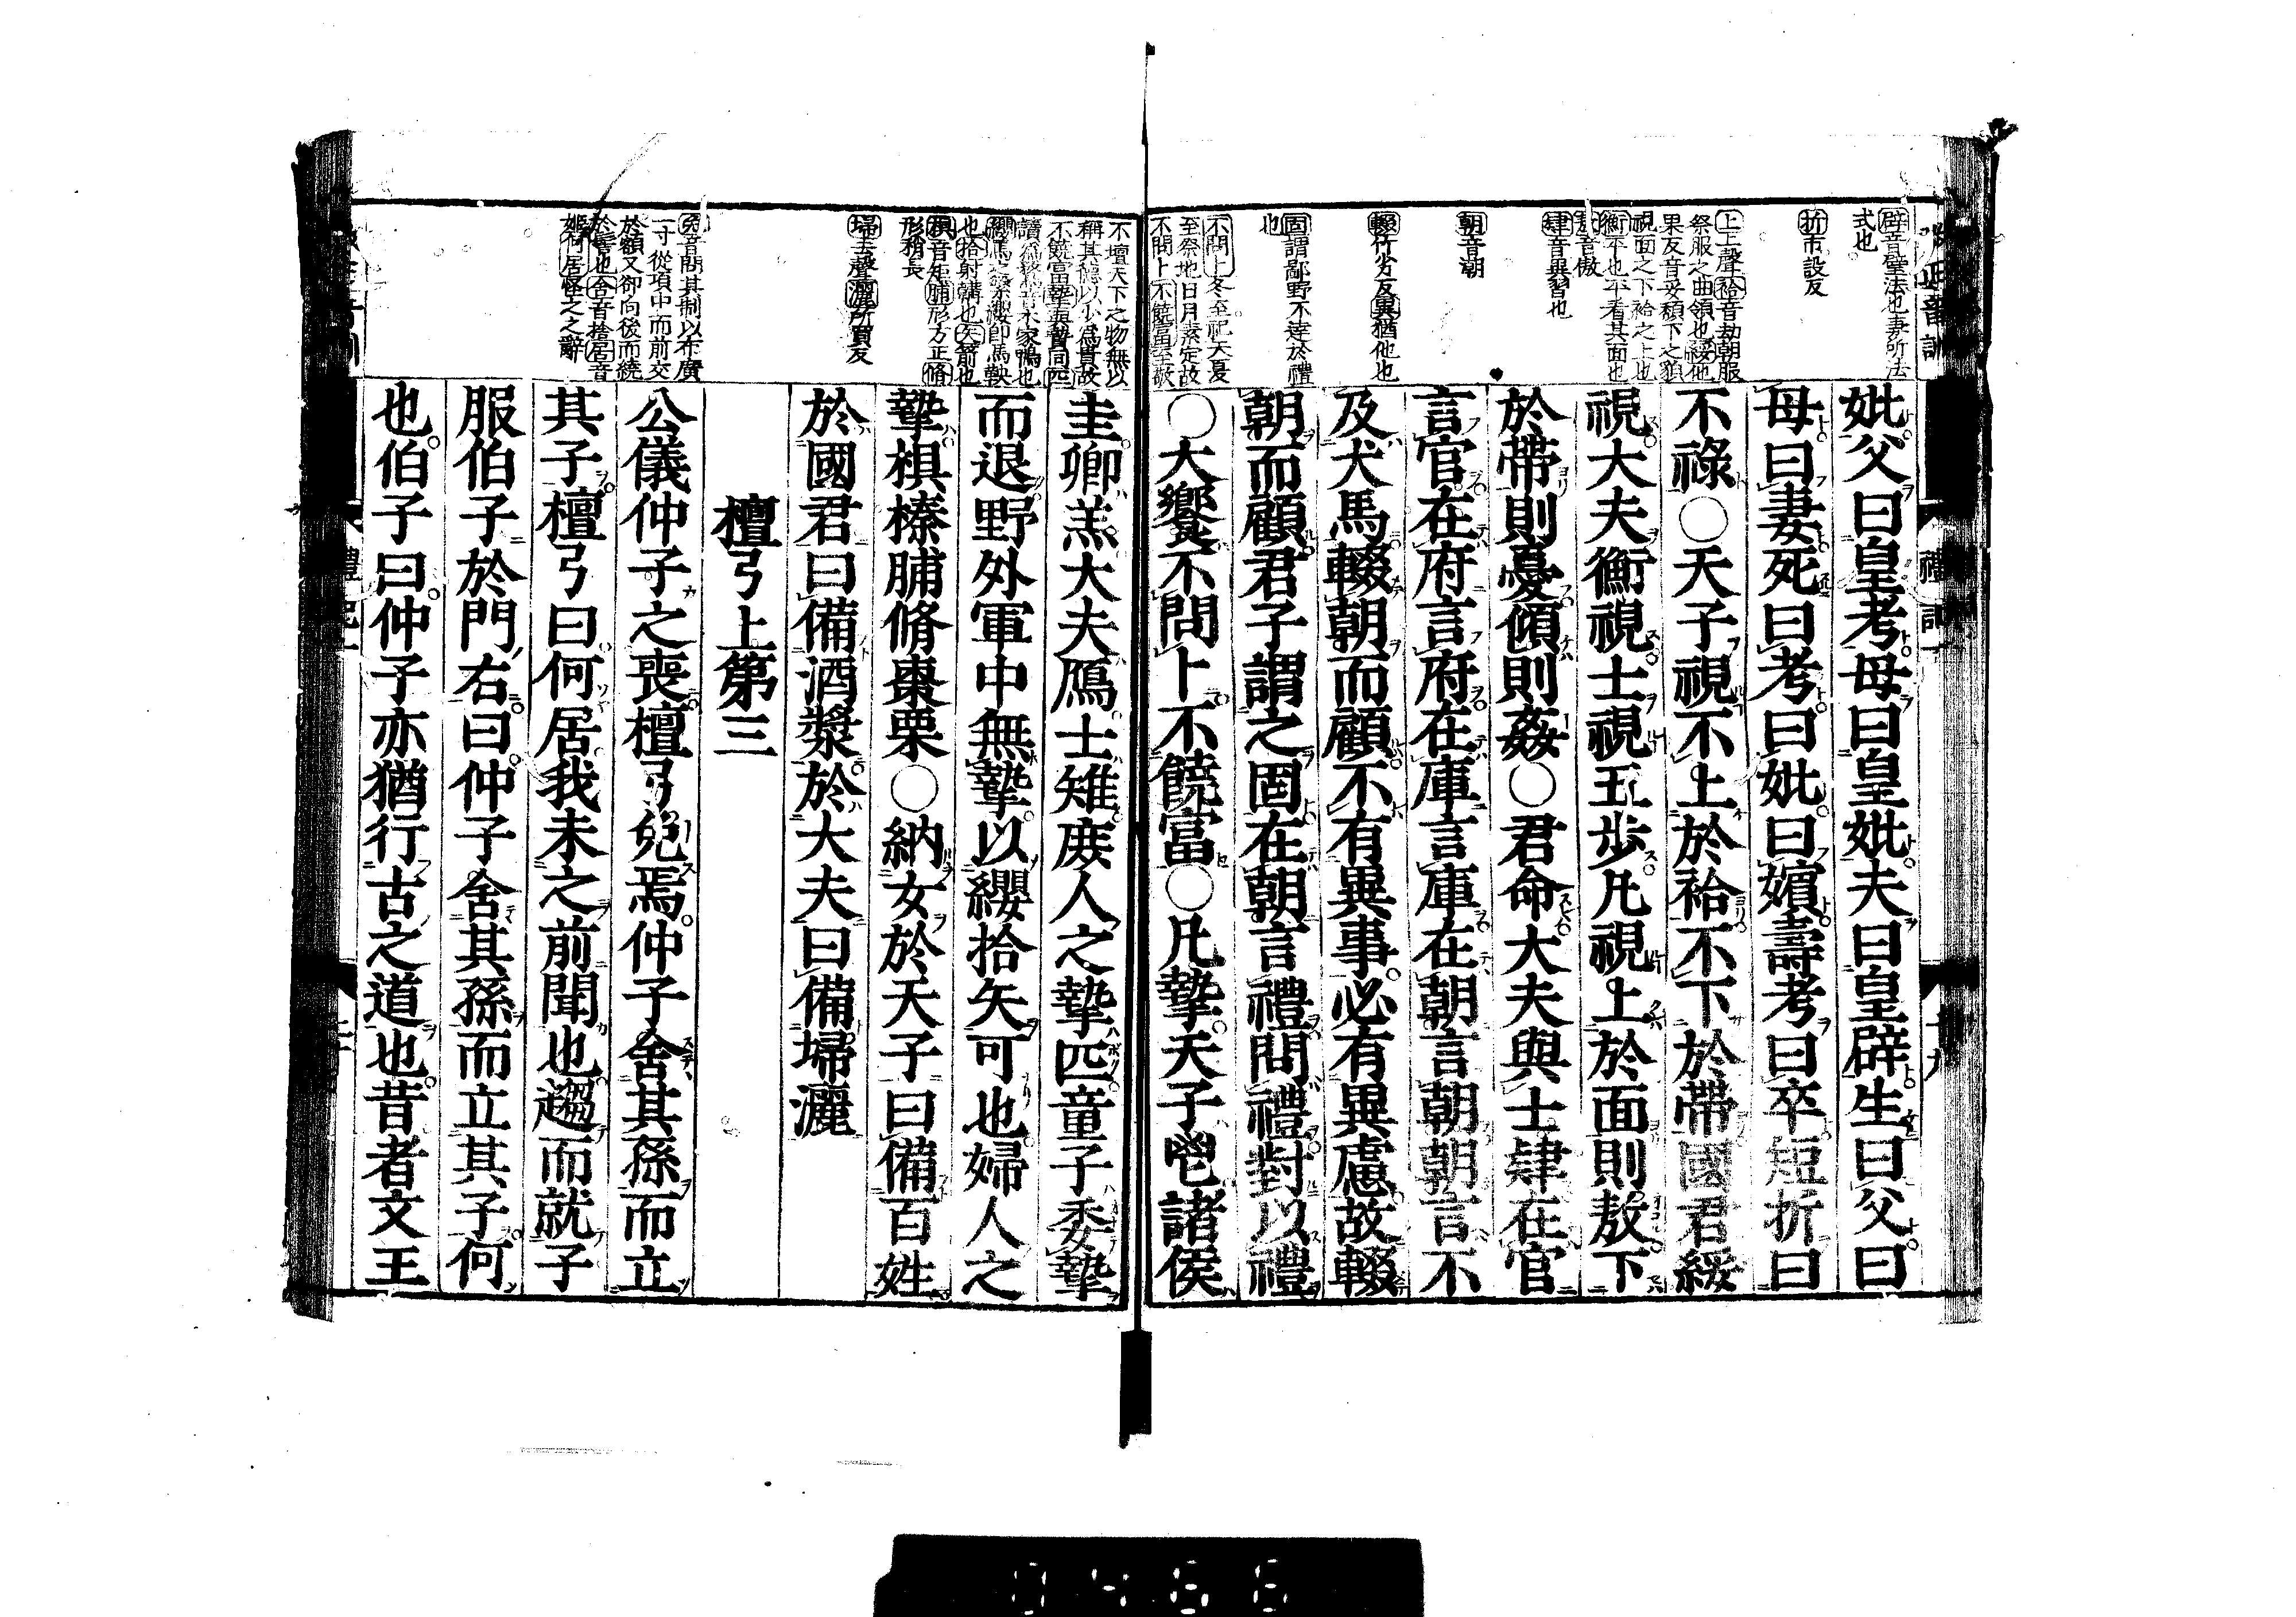 辟音璧法也妻所法
式也
折市設反
上上聲袷音劫朝服
祭服之曲領也綏他
果反音妥頯下之貌
視面之下袷之上也
衡平也平看其面也
敖音傲
肄音異習也
朝音潮
輟竹劣反異猶他也
固謂鄙野不達於禮
也
不問卜冬至祀天夏
至祭地日月素定故
不問卜不饒富
妣父曰皇考母曰皇妣夫曰皇辟生曰父曰
母曰妻死曰考曰妣曰嬪壽考曰卒短折曰
不祿○天子視不上於袷不下於帶國君綏
視大夫衡視士視五歩凡視上於面則敖下
於帶則憂傾則姦○君命大夫與士肄在官
言官在府言府在庫言庫在朝言朝朝言不
及犬馬輟朝而顧不有異事必有異慮故輟
朝而顧君子謂之固在朝言禮問禮對以禮
○大饗不問卜不饒富○凡摯天子鬯諸侯
不壇天下之物無以
稱其德以少爲貴故
不饒富摯與贄同匹
也拾射韝也矢箭也
棋音矩脯形方正脩
形稍長
埽去聲灑所買反
免音問其制以布廣
一寸從項中而前交
於額又卻向後而繞
於髻也舍音捨居音
姬何居怪之之辭
圭卿羔大夫鴈士雉庻人之摯匹童子委摯
而退野外軍中無摯以纓拾矢可也婦人之
摯棋榛脯脩棗栗○納女於天子曰備百姓
於國君曰備酒漿於大夫曰備埽灑
檀弓上第三
公儀仲子之喪檀弓免焉仲子舍其孫而立
其子檀弓曰何居我未之前聞也趨而就子
服伯子於門右曰仲子舍其孫而立其子何
也伯子曰仲子亦猶行古之道也昔者文王